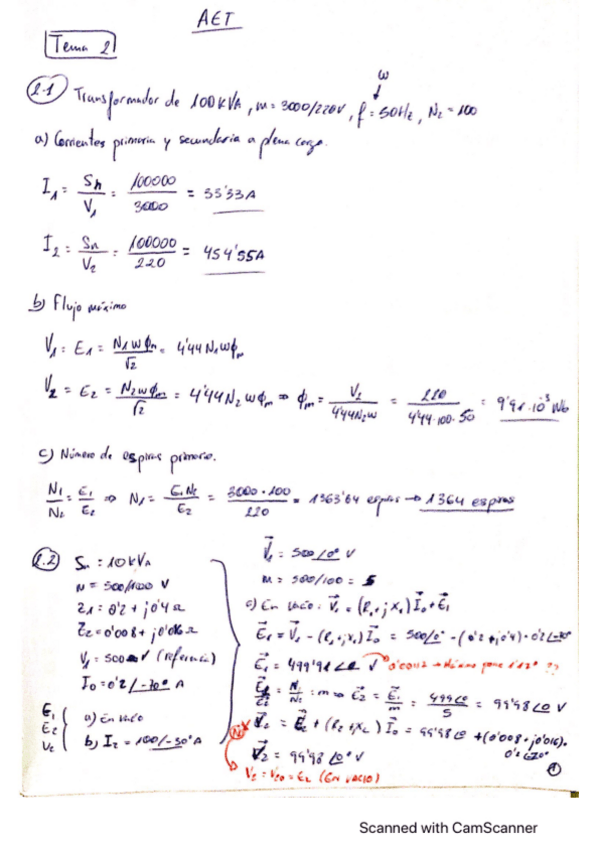 AET
Tema 2
2.1 Transformador de 100KVA, m = 3000/220V, f = 50Hz, N2 = 100
w
a) Corrientes primaria y secundaria a plena carga.
I1 = Sn/V1 = 100000/3000 = 33'33A
I2 = Sn/V2 = 100000/220 = 454'55A
b) Flujo máximo
V1 = E1 = N1wϕm/√2 = 4'44N1wϕm
V2 = E2 = N2wϕm/√2 = 4'44N2wϕm ⇒ ϕm = V2/4'44N2w = 220/4'44·100·50 = 9'91·10⁻³ Wb
c) Número de espiras primario.
N1/N2 = E1/E2 ⇒ N1 = E1N2/E2 = 3000·100/220 = 1363'64 espiras → 1364 espiras
2.2 Sn = 10kVA
m = 500/100 V
Z1 = 0'2 + j0'4 Ω
Z2 = 0'008 + j0'016 Ω
V1 = 500 V (referencia)
I0 = 0'2/-70° A
E1
E2
V2
a) En vacío
b) I2 = 100/-30° A
V1 = 500/0° V
m = 500/100 = 5
a) En vacío: V1 = (R1+jX1)I0+E1
E1 = V1 - (R1+jX1)I0 = 500/0° - (0'2+j0'4)·0'2/-70°
E1 = 499'91/0 V
E1/E2 = N1/N2 = m ⇒ E2 = E1/m = 499/0/5 = 99'98/0 V
V2 = E2 + (R2+jX2) I0 = 99'98/0 + (0'008+j0'016)·
0'2/-70°
V2 = 99'98/0° V
V2 = V20 = E2 (En vacío)
1
Scanned with CamScanner